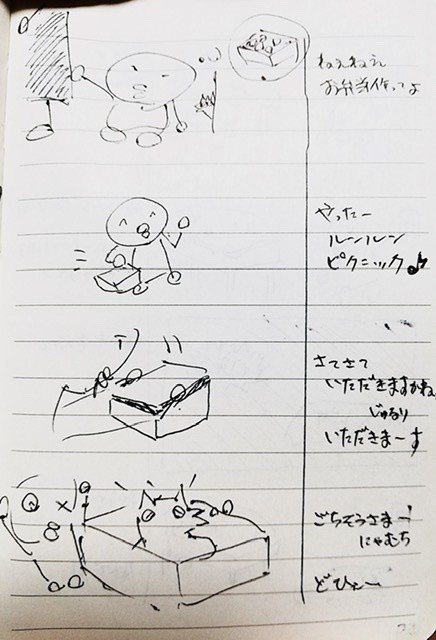 ねえねえ
お弁当作ってよ
やったー
ルンルン
ピクニック♪
さてさて
いただきますかね
じゅるり
いただきまーす
ごちそうさまー
にゃむち
どひぇー